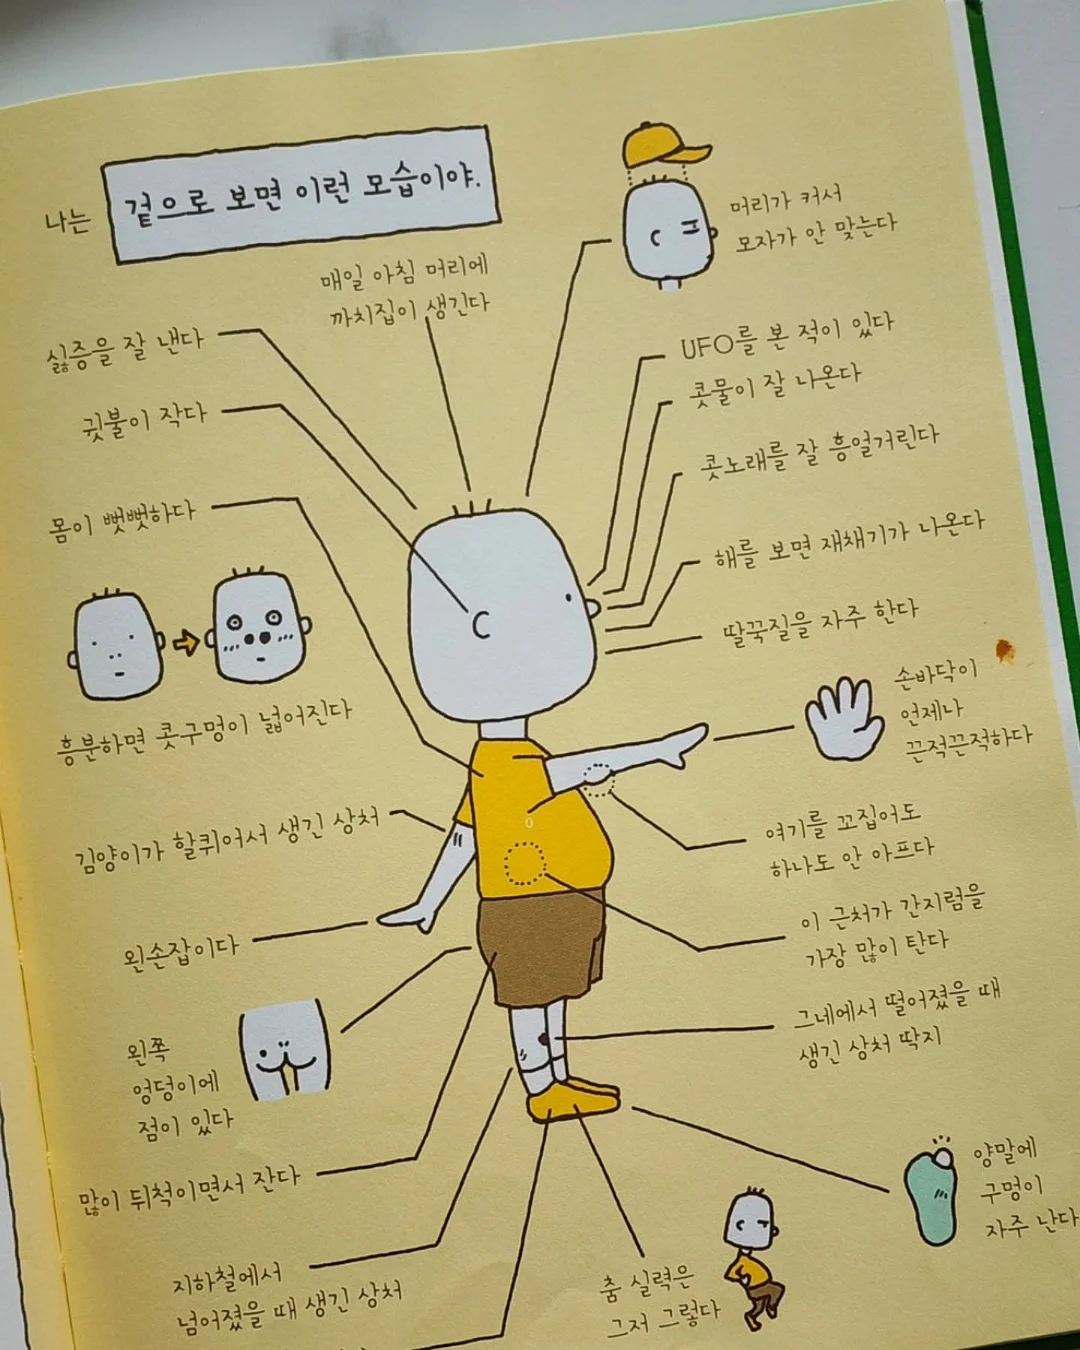 나는 겉으로 보면 이런 모습이야.
머리가 커서
모자가 안 맞는다
매일 아침 머리에
까치집이 생긴다
싫증을 잘 낸다
귓불이 작다
몸이 뻣뻣하다
흥분하면 콧구멍이 넓어진다
김양이가 할퀴어서 생긴 상처
왼손잡이다
왼쪽
엉덩이에
점이 있다
많이 뒤척이면서 잔다
지하철에서
넘어졌을 때 생긴 상처
UFO를 본 적이 있다
콧물이 잘 나온다
콧노래를 잘 흥얼거린다
해를 보면 재채기가 나온다
딸꾹질을 자주 한다
손바닥이
언제나
끈적끈적하다
여기를 꼬집어도
하나도 안 아프다
이 근처가 간지럼을
가장 많이 탄다
그네에서 떨어졌을 때
생긴 상처 딱지
양말에
구멍이
자주 난다
춤 실력은
그저 그렇다